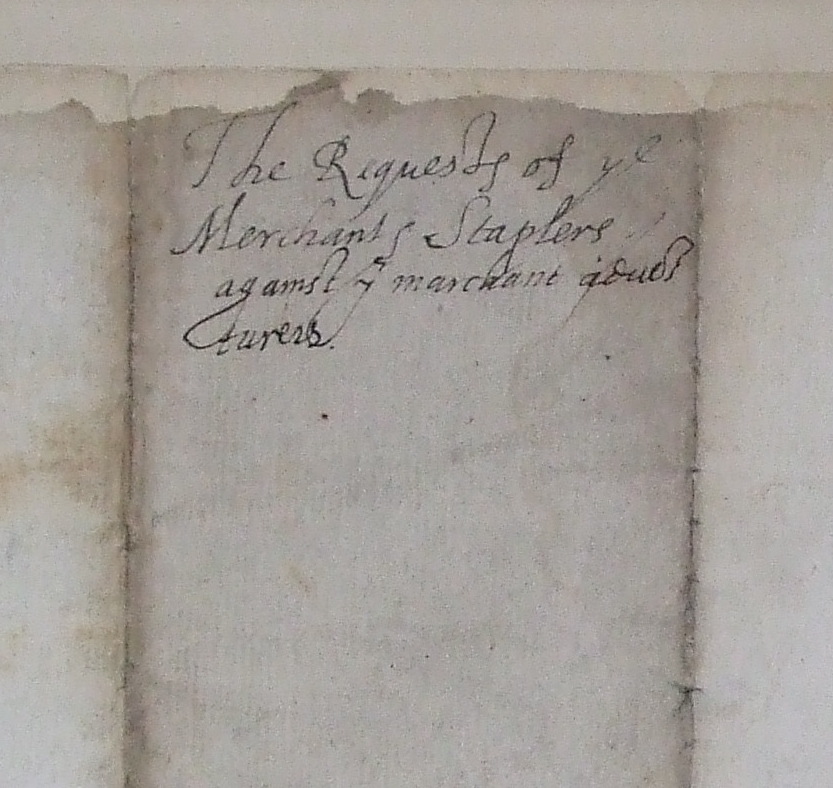 The Requests of ye
Merchants Staplers
against ye marchant adven
turers.